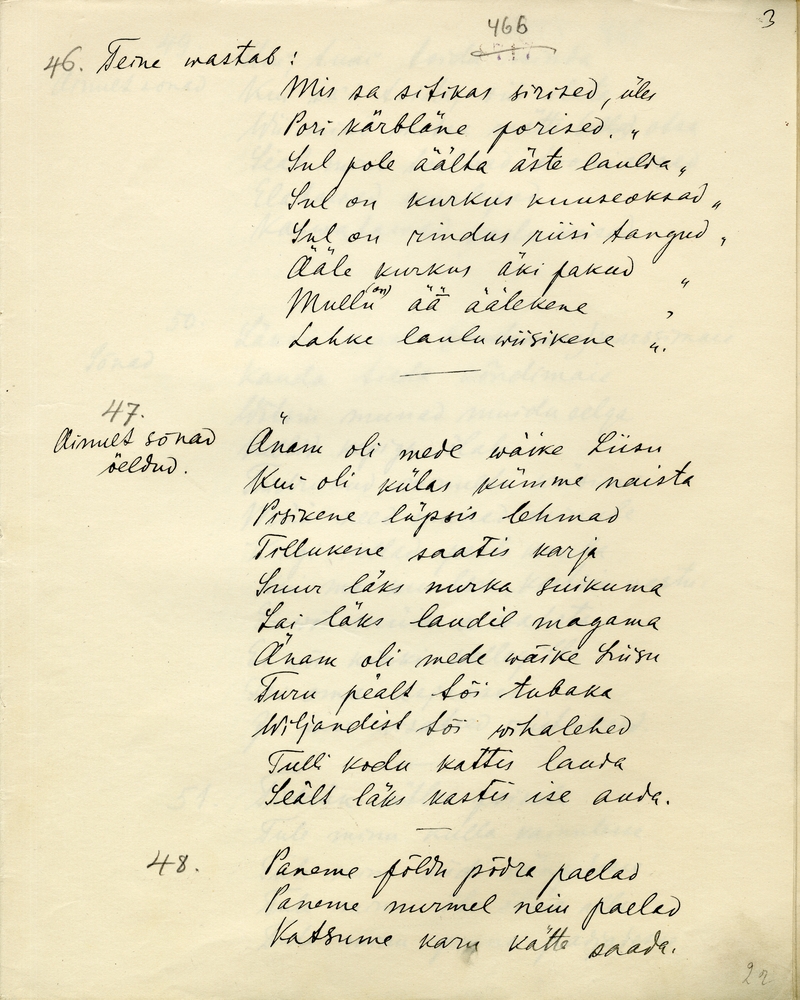 466
3
46. Teine wastab:
Mis sa sitikas sirised, üles
Pori kärbläne porised. „
Sul pole äälta äste laulda „
Sul on kurkus kuuseoksad „
Sul on rindus riisi tangud „
Ääle kurkus äki pakud „
Mullu (on) ää äälekene „
Lahke laulu wiisikene „.
47.
Ainult sõnad
öeldud.
Änam oli mede wäike Liisu
Kui oli külas kümme naista
Pisikene lüpsis lehmad
Tillukene saatis karja
Suur läks nurka suikuma
Lai läks laudil magama
Änam oli mede wäike Liisu
Turu pealt tõi tubaka
Wiljandist tõi wihalehed
Tulli kodu kattis lauda
Seält läks kastis ise auda.
48.
Paneme põldu põdra paelad
Paneme nurmel neiu paelad
Katsume karu kätte saada.
22